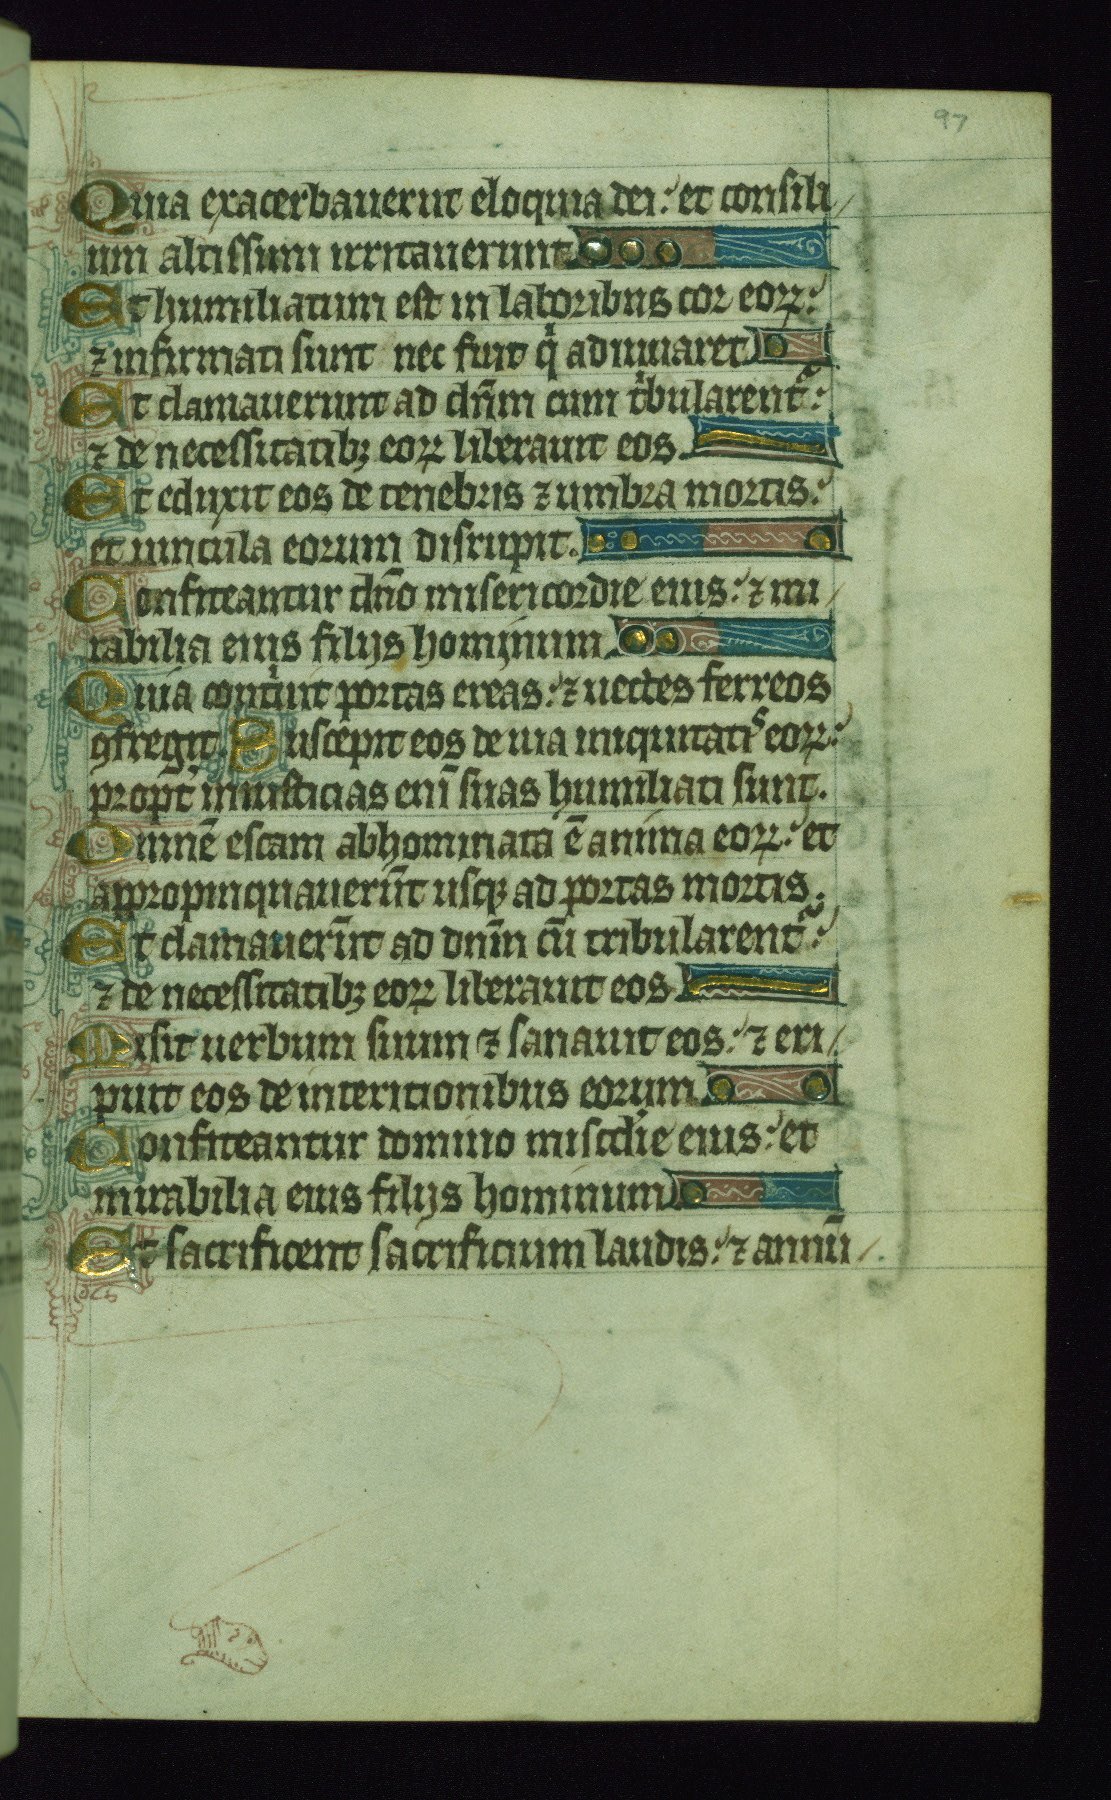 97
Quia exacerbauerūt eloquia dei: et consili/
um altissimi irritauerunt
Et humiliatum est in laboribus cor eoꝝ:
⁊ infirmati sunt nec fuit qͥ adiuuaret
Et clamauerunt ad dn̄m cum tͥbularent᷑:
⁊ de necessitatibꝫ eoꝝ liberauit eos.
Et eduxit eos de tenebris ⁊ umbra mortis:
et uincula eorum disrupit.
Confiteantur dn̄o misericordie eius: ⁊ mi/
rabilia eius filijs hominum.
Quia contͥuit portas ereas: ⁊ uectes ferreos
ꝯfregit. Suscepit eos de uia iniquitatiˢ eoꝝ:
propt̄ iniusticias eni᷑ suas humiliati sunt.
Omnē escam abhominata ē anima eoꝝ: et
appropinquauerūt usqꝫ ad portas mortis.
Et clamauerūt ad dnm̄ cū tribularent᷑:
⁊ de necessitatibꝫ eoꝝ liberauit eos
Misit uerbum suum ⁊ sanauit eos: ⁊ eri/
puit eos de interitionibus eorum.
Confiteantur domino misc̄die eius: et
mirabilia eius filijs hominum
Et sacrificent sacrificium laudis: ⁊ annū/